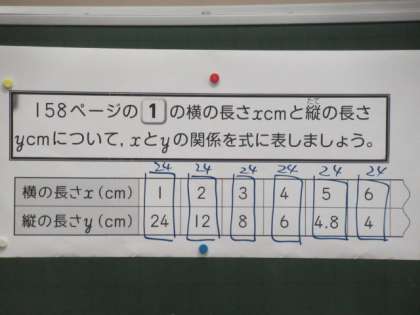 158ページの1の横の長さxcmと縦の長さ
ycmについて,xとyの関係を式に表しましょう。
24 24 24 24 24 24
横の長さx(cm) 1 2 3 4 5 6
縦の長さy(cm) 24 12 8 6 4.8 4